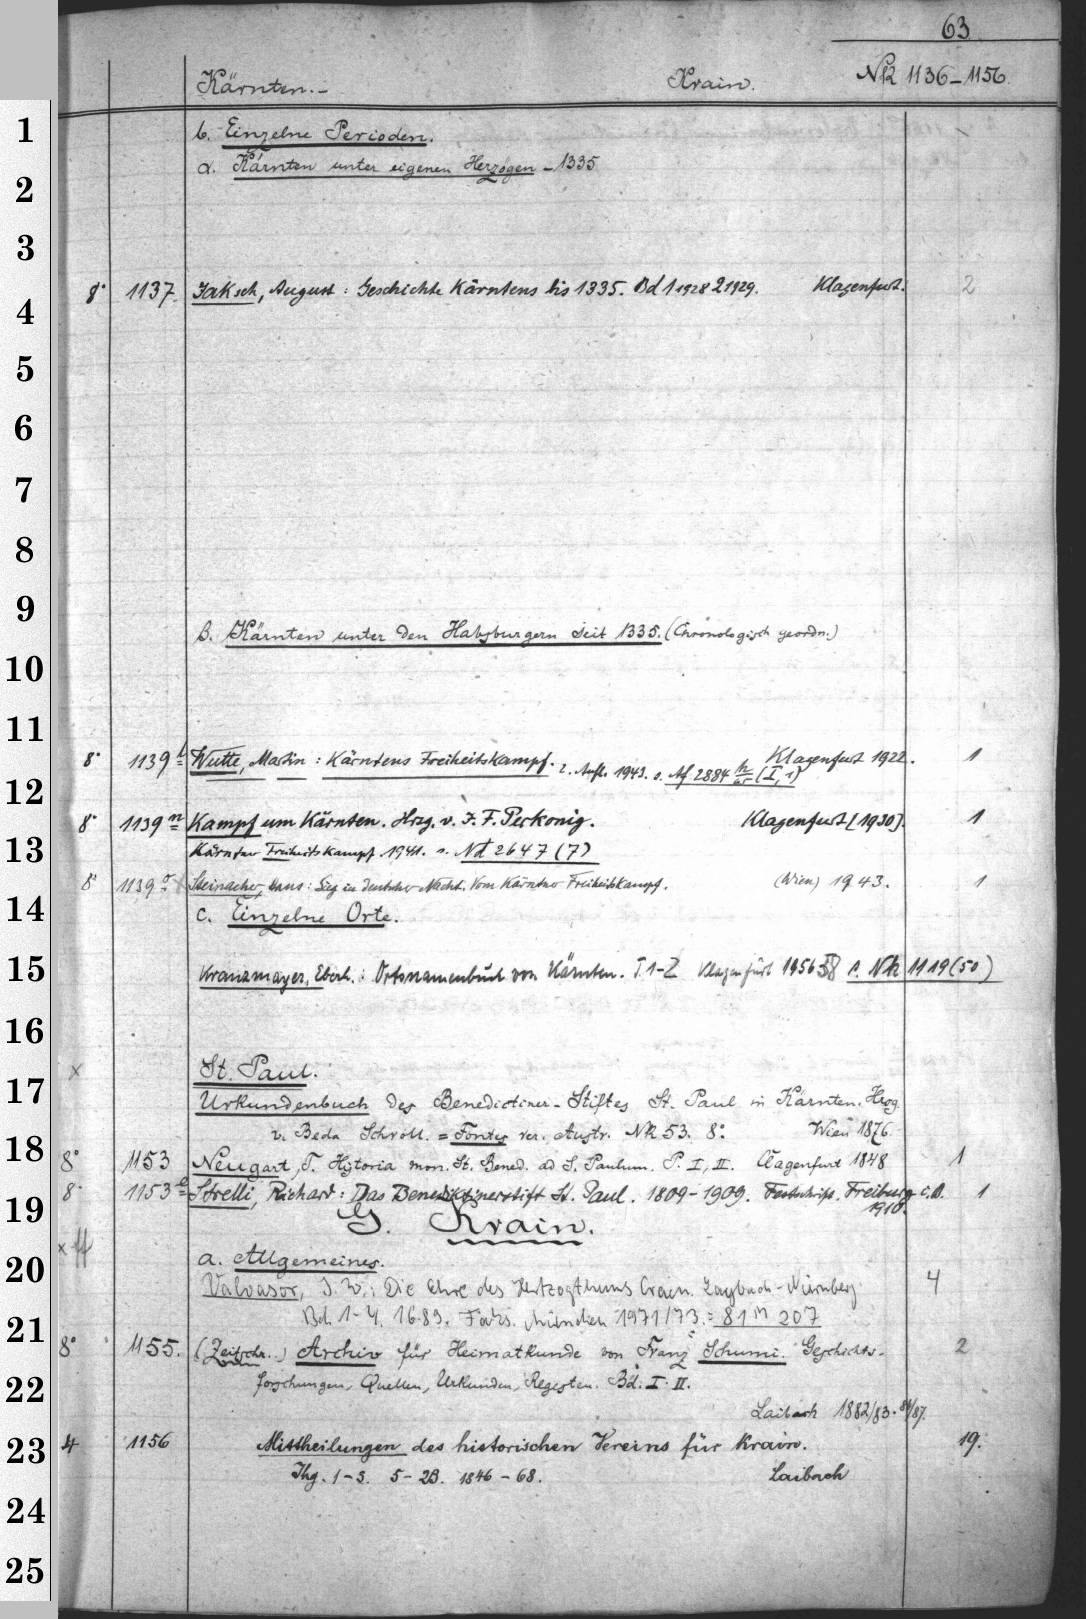 63
Kärnten.- Krain. Nk 1136-1156.
1
b. Einzelne Perioden.
α. Kärnten unter eigenen Herzögen -1335
2
3
8° 1137. Jaksch, August: Geschichte Kärntens bis 1335. Bd 1 1928 2 1929. Klagenfurt. 2
4
5
6
7
8
9
β. Kärnten unter den Habsburgern seit 1335. (Chronologisch geordn.)
10
11
8° 1139 l Wutte, Martin: Kärntens Freiheitskampf. Klagenfurt 1922. 1
2. Aufl. 1943. s. Nf 2884 (I, 1)
12
8° 1139 m Kampf um Kärnten. Hrzg. v. J. F. Perkonig. Klagenfurt [1930]. 1
13
Kärntner Freiheitskampf 1941. s. Nd 2647 (7)
8° 1139 o Steinacher, Hans: Sieg in deutscher Nacht. Vom Kärntner Freiheitskampf. (Wien) 1943. 1
14
c. Einzelne Orte.
15
Kranzmayer, Eberh.: Ortsnamenbuch von Kärnten. T. 1-2 Klagenfurt 1956 58 s. Nk 1119 (50)
16
x St. Paul.
17
Urkundenbuch des Benedictiner-Stiftes St. Paul in Kärnten. Hrog.
v. Beda Schroll. = Fontes rer. Austr. Nk 53. 8°. Wien 1876.
18
8° 1153 Neugart, T. Hystoria mon. St. Bened. ad S. Paulum. P. I, II. Clagenfurt 1848 1
8° 1153 e Strelli, Richard: Das Benediktinerstift St. Paul. 1809-1909. Festschrift. Freiburg i.B. 1
1910.
19
G. Krain.
x ff
a. Allgemeines.
20
Valvasor, J. W.: Die Ehre des Hertzogthums Crain. Laybach-Nürnberg 4
Bd. 1-4. 1689. Faks. München 1971/73.: 81 m 207
21
8° 1155. (Zeitschr.) Archiv für Heimatkunde von Franz Schumi. Geschichts- 2
22
forschungen, Quellen, Urkunden, Regesten. Bd. I. II.
Laibach 1882/83. 84/87.
23
4 1156 Mittheilungen des historischen Vereins für Krain. 19.
Jhg. 1-3. 5-23. 1846-68. Laibach
24
25